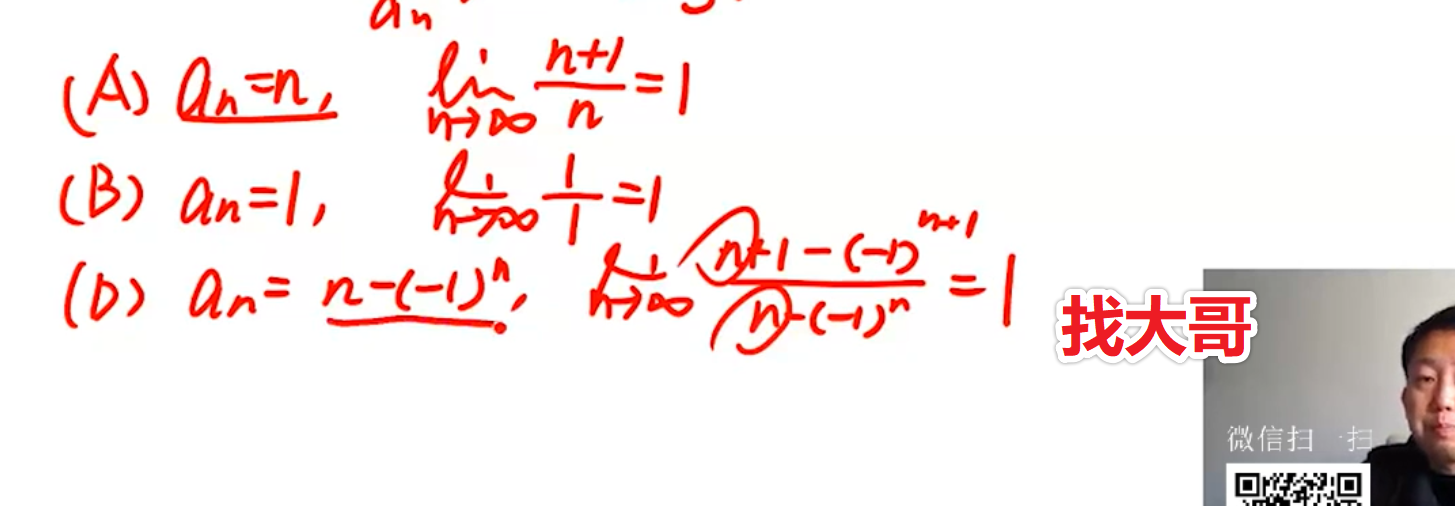 aₙ
(A) aₙ=n, lim n→∞ (n+1)/n = 1
(B) aₙ=1, lim n→∞ 1/1 = 1
(D) aₙ= n-(-1)ⁿ, lim n→∞ (n+1-(-1)ⁿ⁺¹)/(n-(-1)ⁿ) = 1
找大哥
微信扫一扫